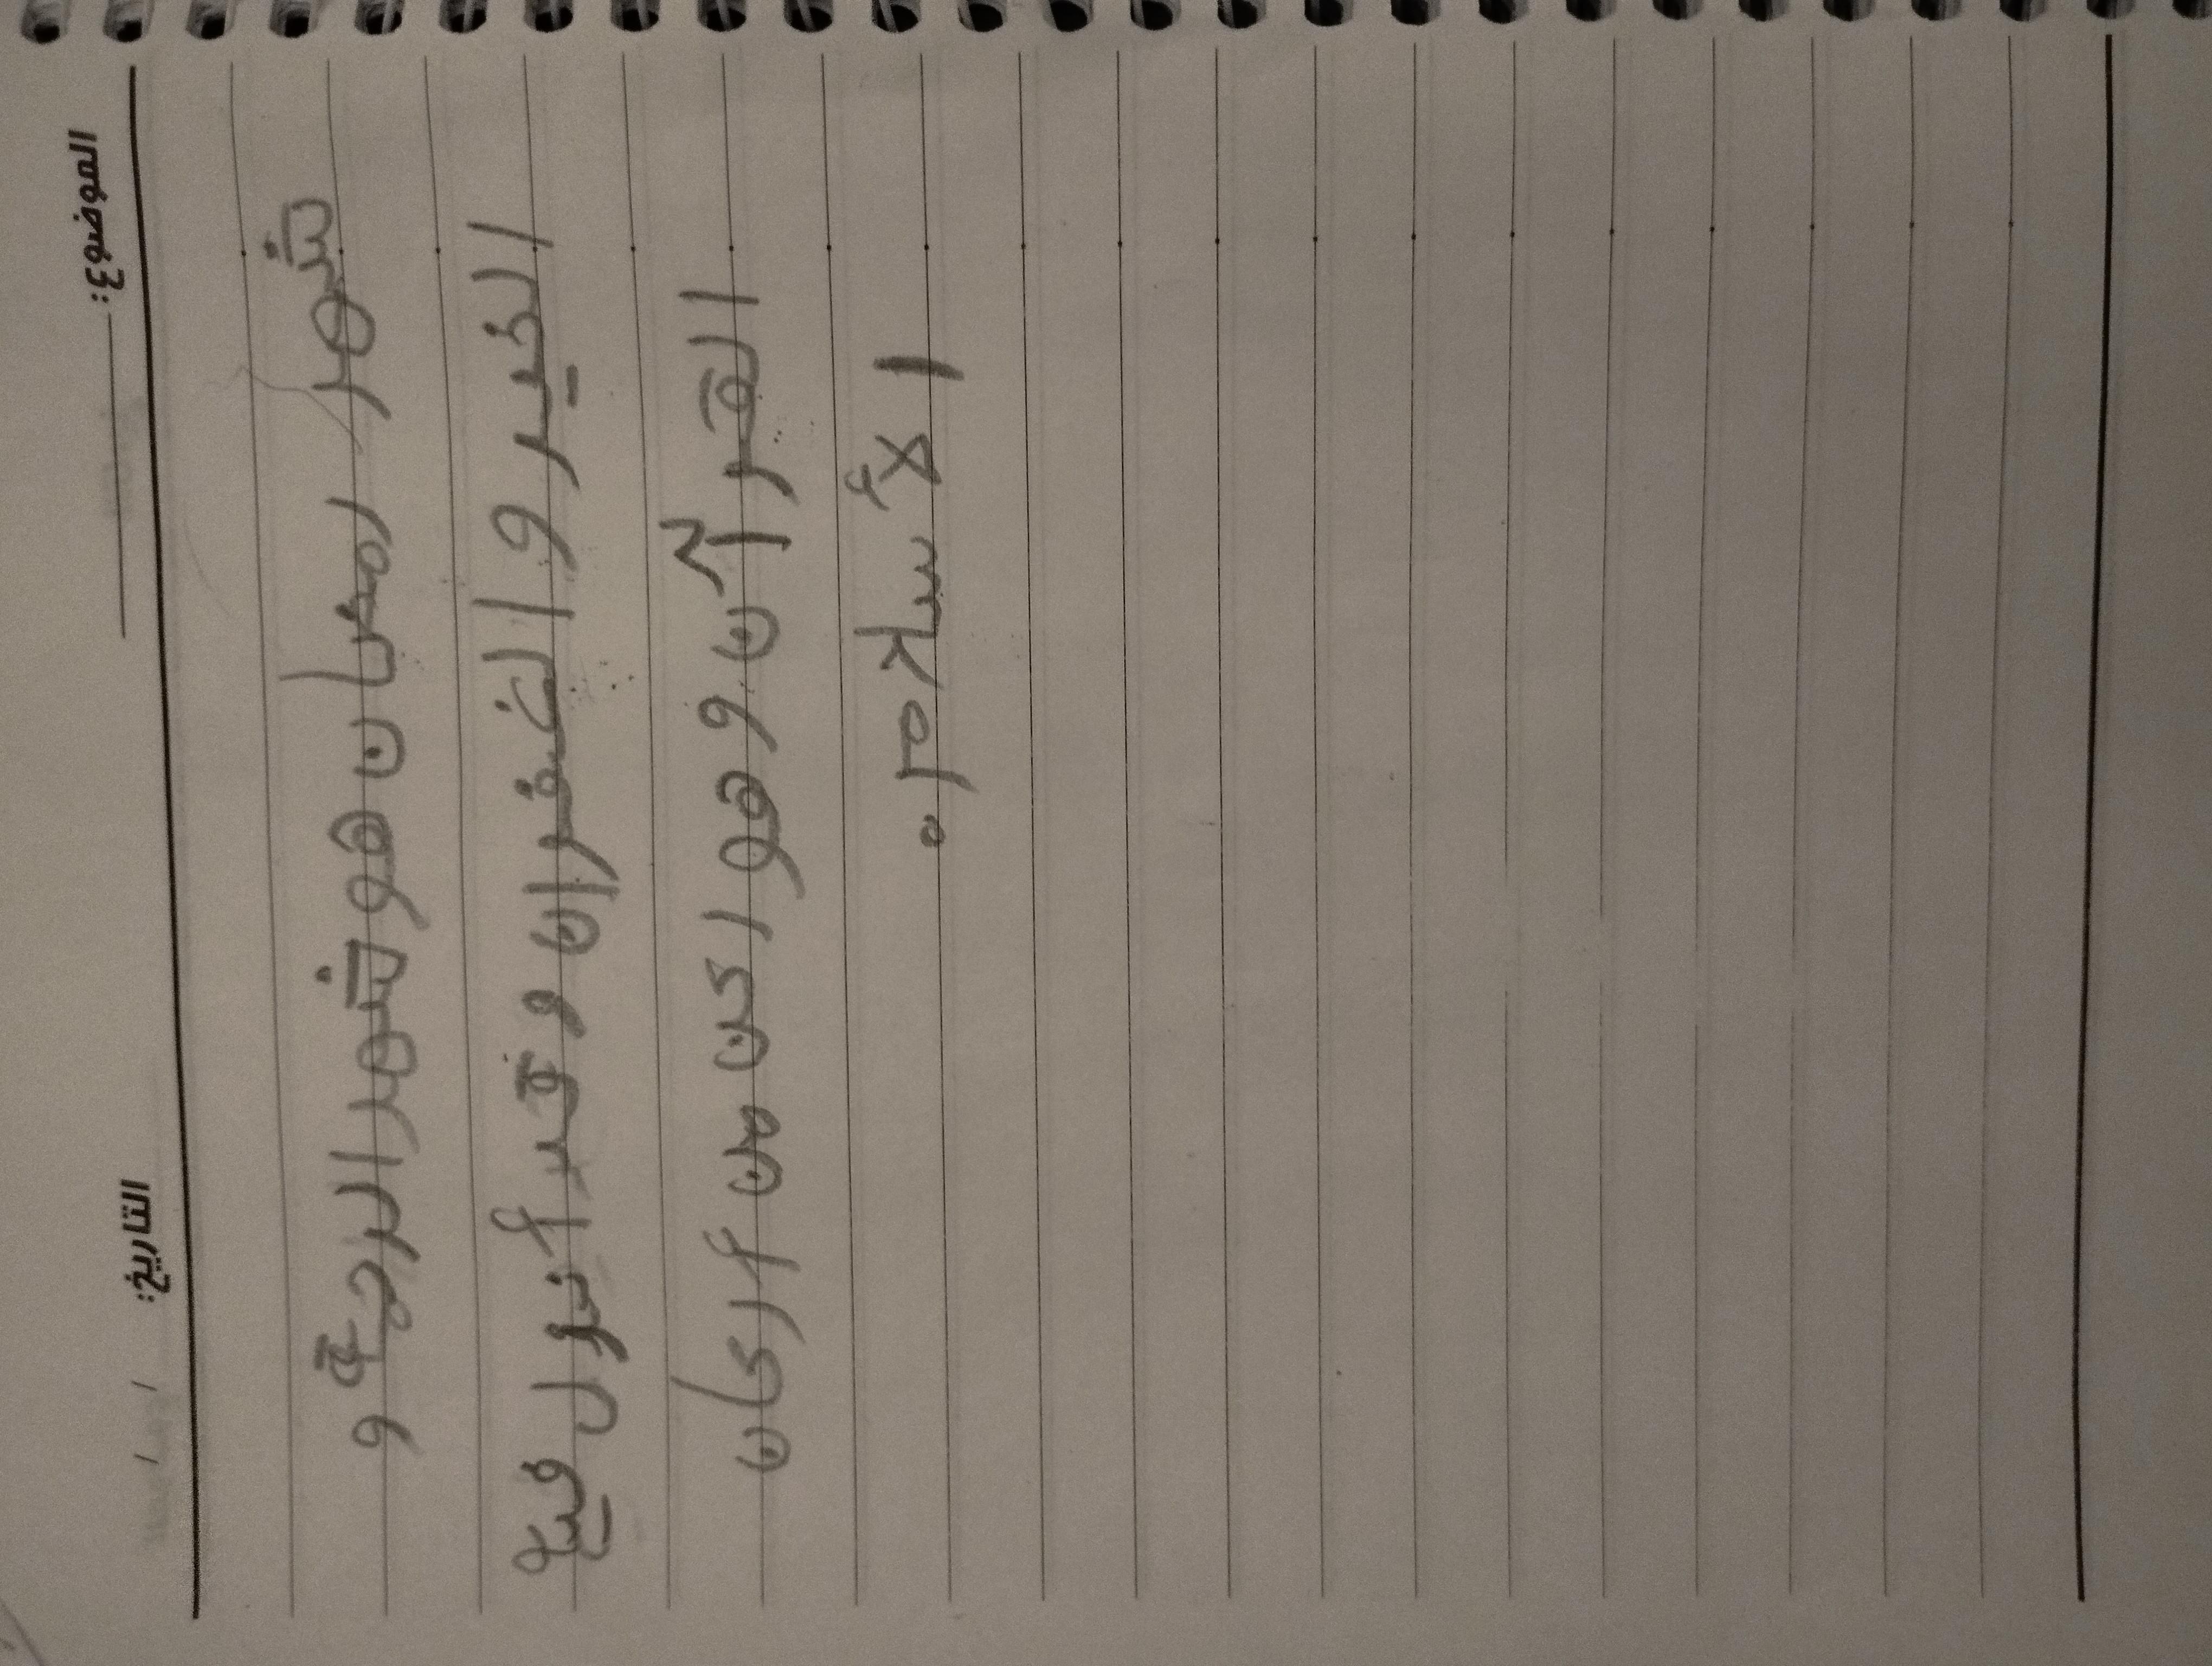 الموضوع: التاريخ: / /
شهر رمضان هو شهر الرحمة و
الخير و الغفران و قد أنزل فيه
القرآن و هو ركن من أركان
الإسلام.